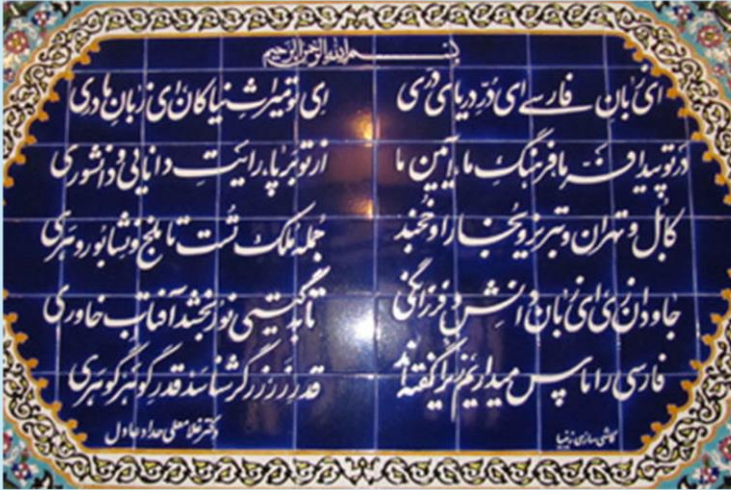 بسم الله الرحمن الرحیم
ای زبان فارسی ای دُرّ دریای دری ای تو میراث نیاکان ای زبان مادری
در تو پیدا فرّ ما فرهنگ ما، آیین ما از تو بر پا، رایت دانایی و دانشوری
کابل و تهران و تبریز و بخارا و خجند جمله مُلک تُست تا بلخ و نشابور و هری
جاودان زی ای زبان دانش و فرزانگی تا به گیتی نور بخشد آفتاب خاوری
فارسی را پاس میداریم زیرا گفته‌اند قدر زر زرگر شناسد قدر گوهر گوهری
کاشی سازی زیبا دکتر غلامعلی حداد عادل